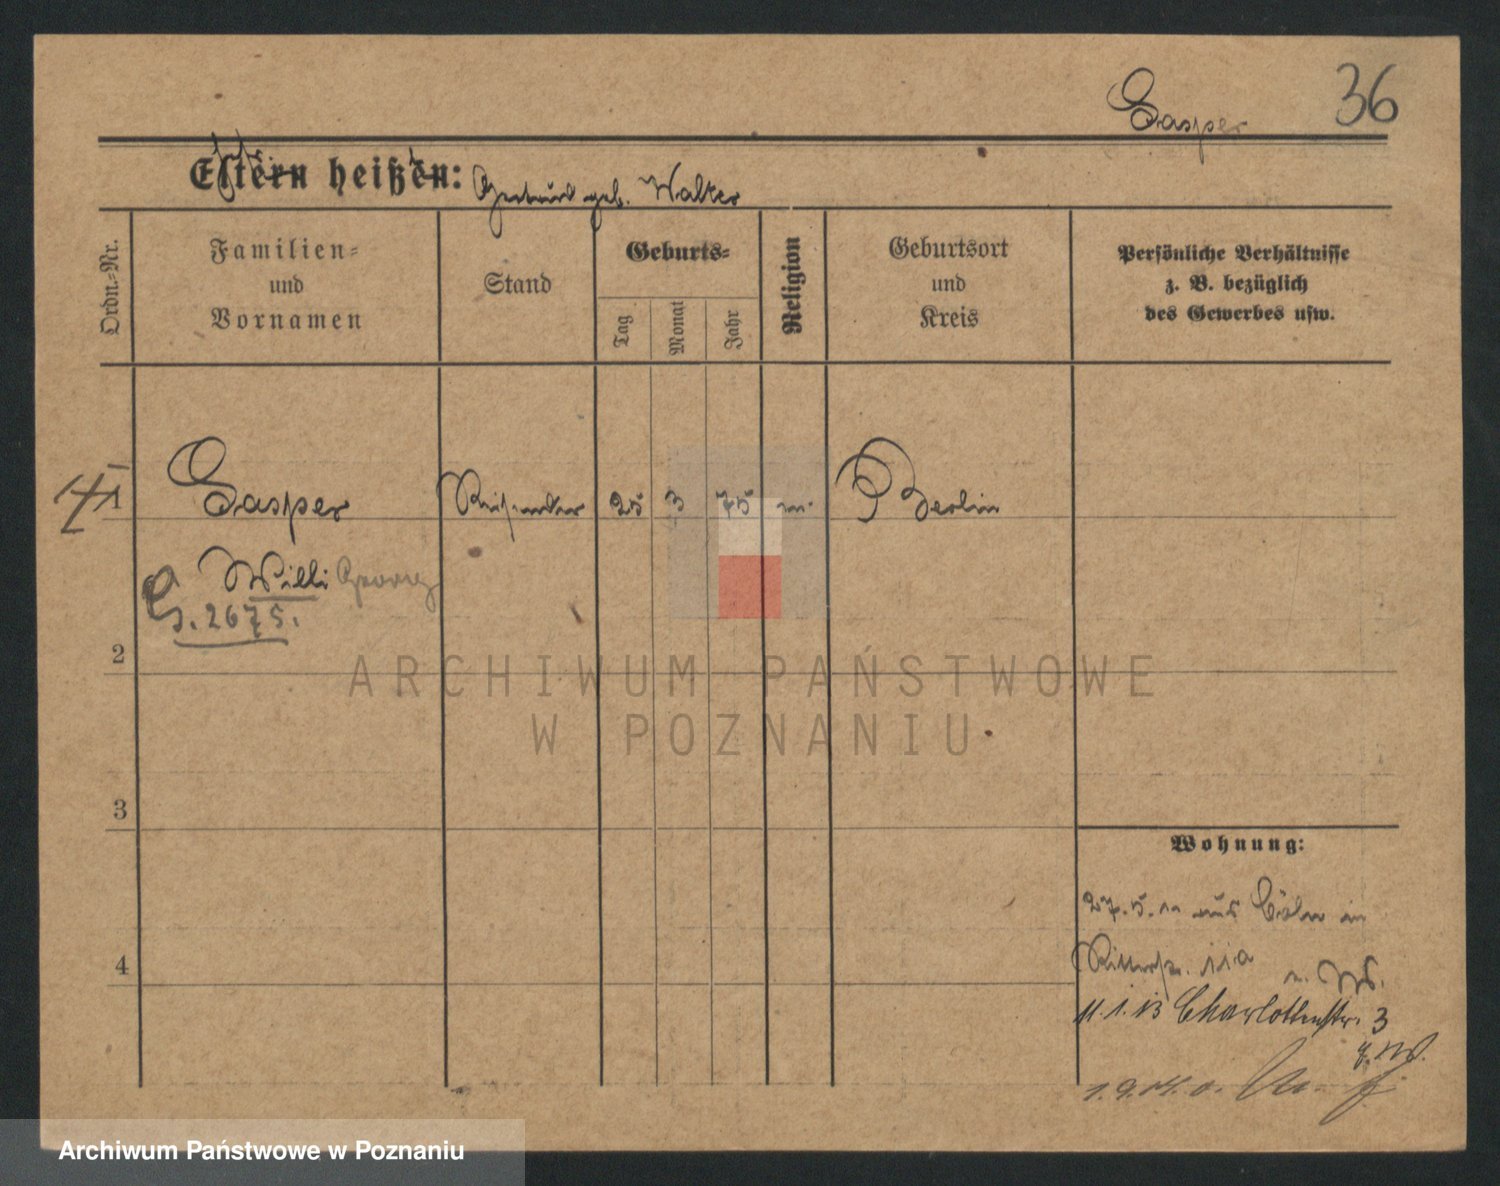 Casper 36
Eltern heißen: Gertrud geb. Walter
Ordn.-Nr.
Familien-
und
Vornamen
Stand
Geburts-
Tag
Monat
Jahr
Religion
Geburtsort
und
Kreis
Persönliche Verhältnisse
z. B. bezüglich
des Gewerbes usw.
1 Casper Reisender 25 3 75 m. Berlin
Willi Georg
G. 2675.
2
3
4
Wohnung:
27.5.10 aus Cöln in
Ritterstr. 11a
11.1.13 Charlottenstr. 3
ARCHIWUM PAŃSTWOWE
W POZNANIU
Archiwum Państwowe w Poznaniu